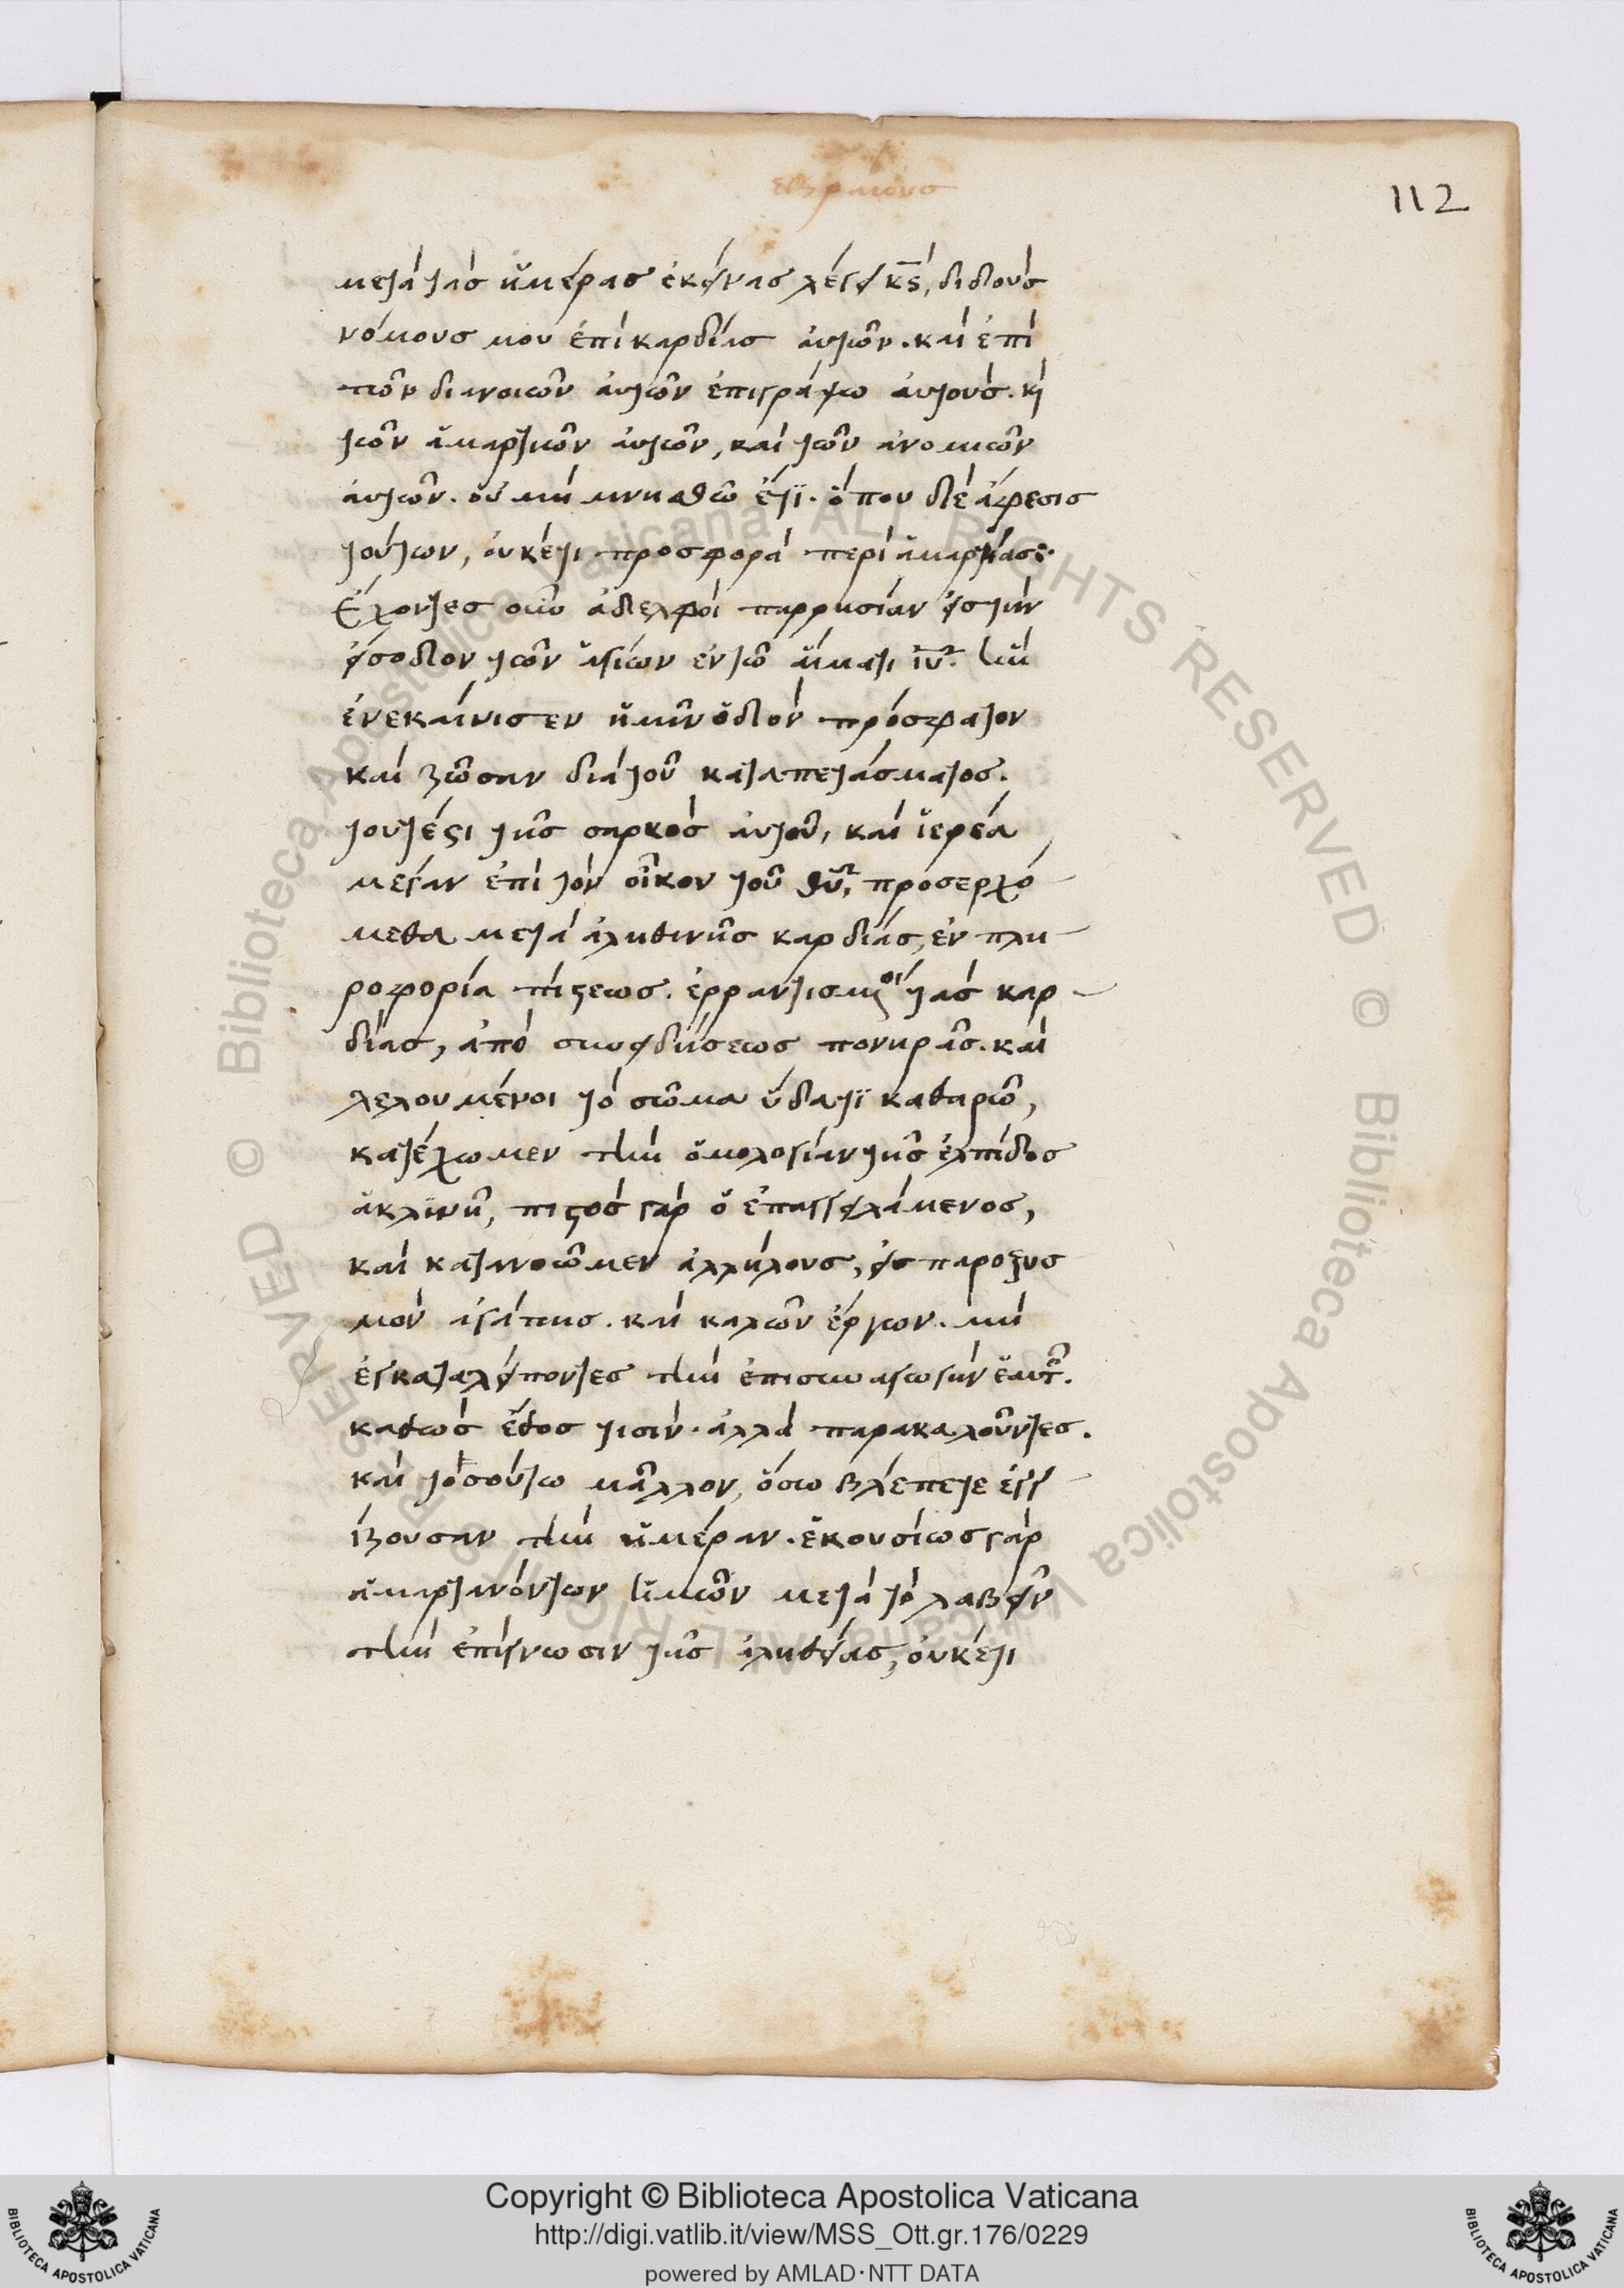 εβραιους
112
μετὰ τὰς ἡμέρας ἐκείνας λέγει κς, διδοὺς
νόμους μου ἐπὶ καρδίας αὐτῶν. καὶ ἐπὶ
τῶν διανοιῶν αὐτῶν ἐπιγράψω αὐτούς. κὶ
τῶν ἁμαρτιῶν αὐτῶν, καὶ τῶν ἀνομιῶν
αὐτῶν. οὐ μὴ μνησθῶ ἔτϊ. ὅπου δὲ ἄφεσις
τούτων, οὐκέτι προσφορὰ περὶ ἁμαρτίας:
Ἔχοντες οὖν ἀδελφοὶ παρρησίαν εἰς τὴν
εἴσοδον τῶν ἁγίων ἐν τῶ αἵματι ἰυ. ἣν
ἐνεκαίνισεν ἡμῖν ὁδὸν πρόσφατον
καὶ ζῶσαν διὰ τοῦ καταπετάσματος.
τουτέστι τῆς σαρκὸς αὐτοῦ, καὶ ἱερέα
μέγαν ἐπὶ τὸν οἶκον τοῦ θυ, προσερχό
μεθα μετὰ ἀληθινῆς καρδίας, ἐν πλη
ροφορία πίστεως. ἐρραντισμοι τὰς καρ
δίας, ἀπὸ συνειδήσεως πονηρᾶς. καὶ
λελουμένοι τὸ σῶμα ὕδατϊ καθαρῶ,
κατέχωμεν τὴν ὁμολογίαν τῆς ἐλπίδος
ἀκλϊνῆ, πιστὸς γὰρ ὁ ἐπαγγειλάμενος,
καὶ κατανοῶμεν ἀλλήλους, εἰς παροξυσ
μὸν ἀγάπης. καὶ καλῶν ἔργων. μὴ
ἐγκαταλείποντες τὴν ἐπισυναγωγὴν ἑαυτ.
καθὼς ἔθος τισίν. ἀλλὰ παρακαλοῦντες.
καὶ τὸσούτω μᾶλλον, ὅσω βλέπετε ἐγγ
ίζουσαν τὴν ἡμέραν. ἑκουσίως γὰρ
ἁμαρτανόντων ἡμῶν μετὰ τὸ λαβεῖν
τὴν ἐπίγνωσιν τῆς ἀληθείας, οὐκέτι
Copyright © Biblioteca Apostolica Vaticana
http://digi.vatlib.it/view/MSS_Ott.gr.176/0229
powered by AMLAD·NTT DATA
BIBLIOTECA APOSTOLICA VATICANA
BIBLIOTECA APOSTOLICA VATICANA